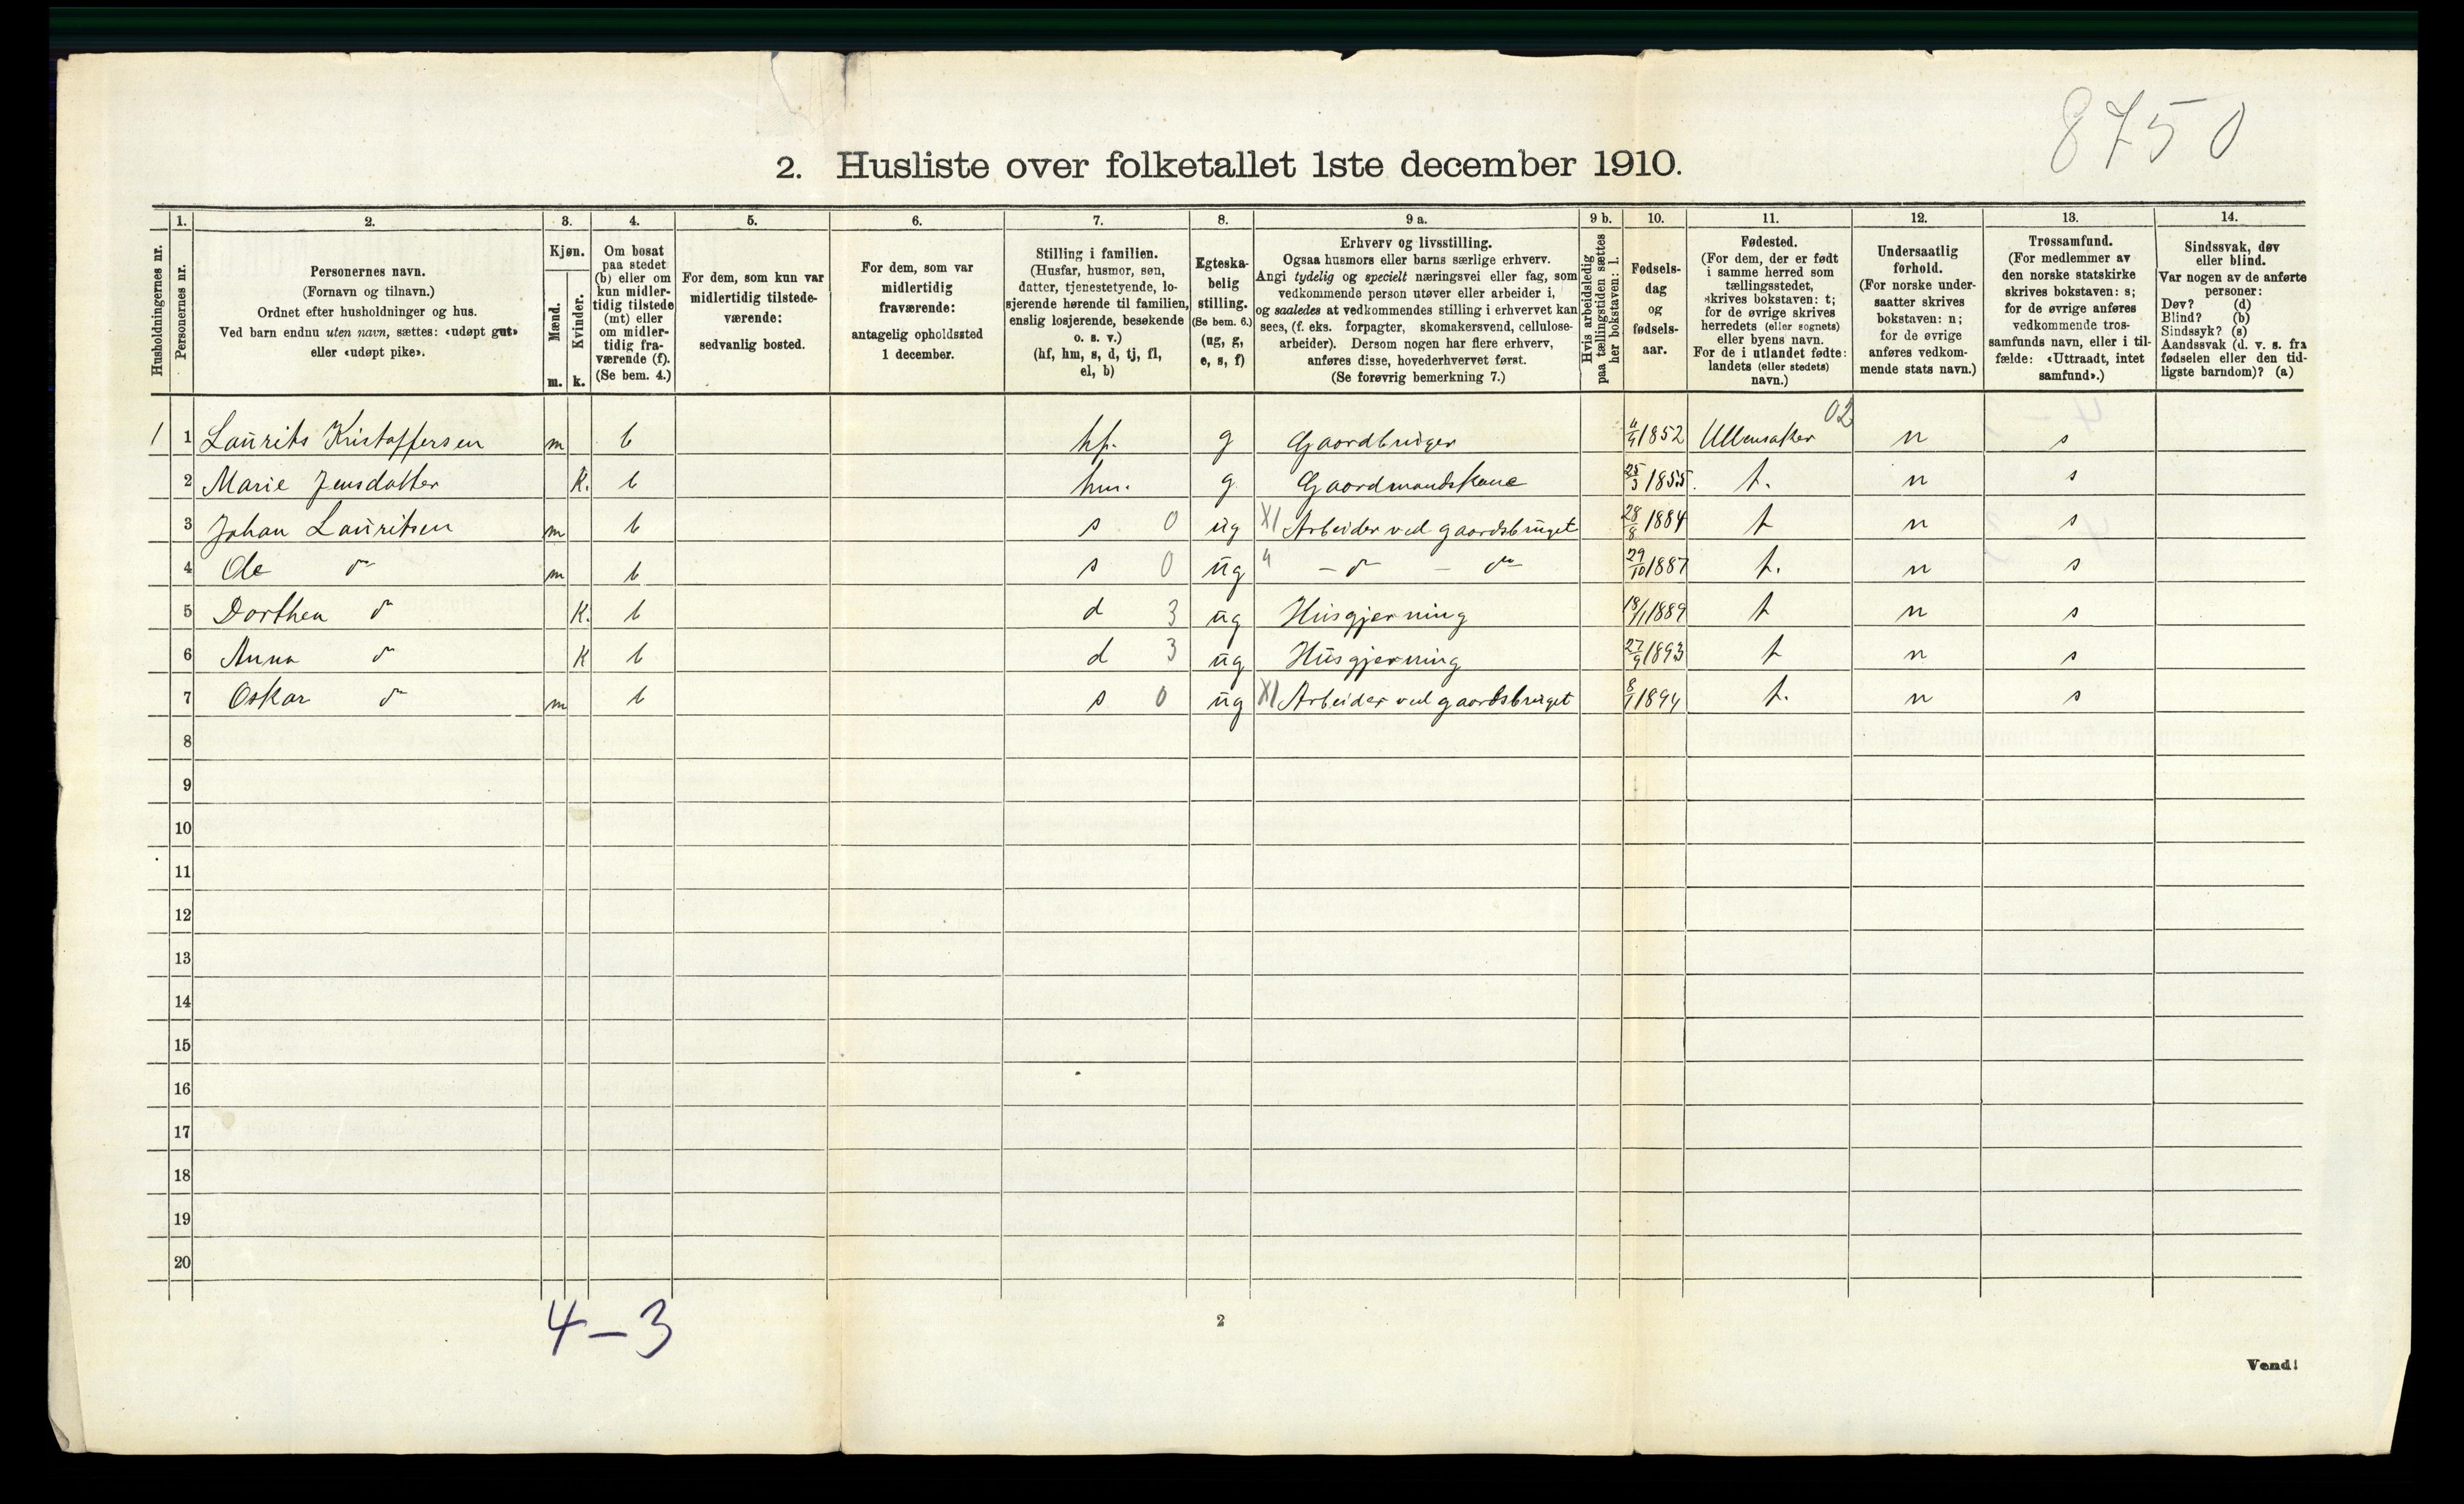 8750
2. Husliste over folketallet 1ste december 1910.
Husholdningernes nr.
1.
Personernes nr.
2.
Personernes navn.
(Fornavn og tilnavn.)
Ordnet efter husholdninger og hus.
Ved barn endnu uten navn, sættes: «udøpt gut»
eller «udøpt pike».
3.
Kjøn.
Mænd.
m.
Kvinder.
k.
4.
Om bosat
paa stedet
(b) eller om
kun midler-
tidig tilstede
(mt) eller
om midler-
tidig fra-
værende (f).
(Se bem. 4.)
5.
For dem, som kun var
midlertidig tilstede-
værende:
sedvanlig bosted.
6.
For dem, som var
midlertidig
fraværende:
antagelig opholdssted
1 december.
7.
Stilling i familien.
(Husfar, husmor, søn,
datter, tjenestetyende, lo-
sjerende hørende til familien,
enslig losjerende, besøkende
o. s. v.)
(hf, hm, s, d, tj, fl,
el, b)
8.
Egteska-
belig
stilling.
(Se bem. 6.)
(ug, g,
e, s, f)
9 a.
Erhverv og livsstilling.
Ogsaa husmors eller barns særlige erhverv.
Angi tydelig og specielt næringsvei eller fag, som
vedkommende person utøver eller arbeider i,
og saaledes at vedkommendes stilling i erhvervet kan
sees, (f. eks. forpagter, skomakersvend, cellulose-
arbeider). Dersom nogen har flere erhverv,
anføres disse, hovederhvervet først.
(Se forøvrig bemerkning 7.)
9 b.
Hvis arbeidsledig
paa tællingstiden sættes
her bokstaven: l.
10.
Fødsels-
dag
og
fødsels-
aar.
11.
Fødested.
(For dem, der er født
i samme herred som
tællingsstedet,
skrives bokstaven: t;
for de øvrige skrives
herredets (eller sognets)
eller byens navn.
For de i utlandet fødte:
landets (eller stedets)
navn.)
12.
Undersaatlig
forhold.
(For norske under-
saatter skrives
bokstaven: n;
for de øvrige
anføres vedkom-
mende stats navn.)
13.
Trossamfund.
(For medlemmer av
den norske statskirke
skrives bokstaven: s;
for de øvrige anføres
vedkommende tros-
samfunds navn, eller i til-
fælde: «Uttraadt, intet
samfund».)
14.
Sindssvak, døv
eller blind.
Var nogen av de anførte
personer:
Døv? (d)
Blind? (b)
Sindssyk? (s)
Aandssvak (d. v. s. fra
fødselen eller den tid-
ligste barndom)? (a)
02
1 1 Laurits Kristoffersen m b hf. g Gaardbruger 1852 Ullensaker n s
2 Marie Jensdatter K. b hm. g Gaardmandskone 25/3 1855. t. n s
3 Johan Lauritsen m b s 0 ug XI Arbeider ved gaardsbruget 28/8 1884 t n s
4 Ole do m b s 0 ug " – do – do 29/10 1887 t. n s
5 Dorthea do K. b d 3 ug Husgjerning 18/1 1889 t n s
6 Anna do K b d 3 ug Husgjerning 27/9 1893 t n s
7 Oskar do m b s 0 ug XI Arbeider ved gaardsbruget 8/1 1894 t. n s
8
9
10
11
12
13
14
15
16
17
18
19
20
4–3
2
Vend!